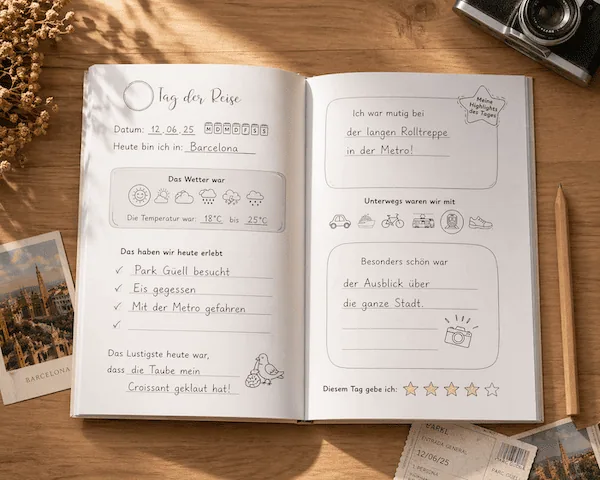 Tag der Reise
Datum: 12.06.25 M D M D F S S
Heute bin ich in: Barcelona
Das Wetter war
Die Temperatur war: 18°C bis 25°C
Das haben wir heute erlebt
✓ Park Güell besucht
✓ Eis gegessen
✓ Mit der Metro gefahren
✓
Das Lustigste heute war,
dass die Taube mein
Croissant geklaut hat!
Meine
Highlights
des Tages
Ich war mutig bei
der langen Rolltreppe
in der Metro!
Unterwegs waren wir mit
Besonders schön war
der Ausblick über
die ganze Stadt.
Diesem Tag gebe ich:
BARCELONA
ENTRADA GENERAL
12/06/25
1 PERSONA